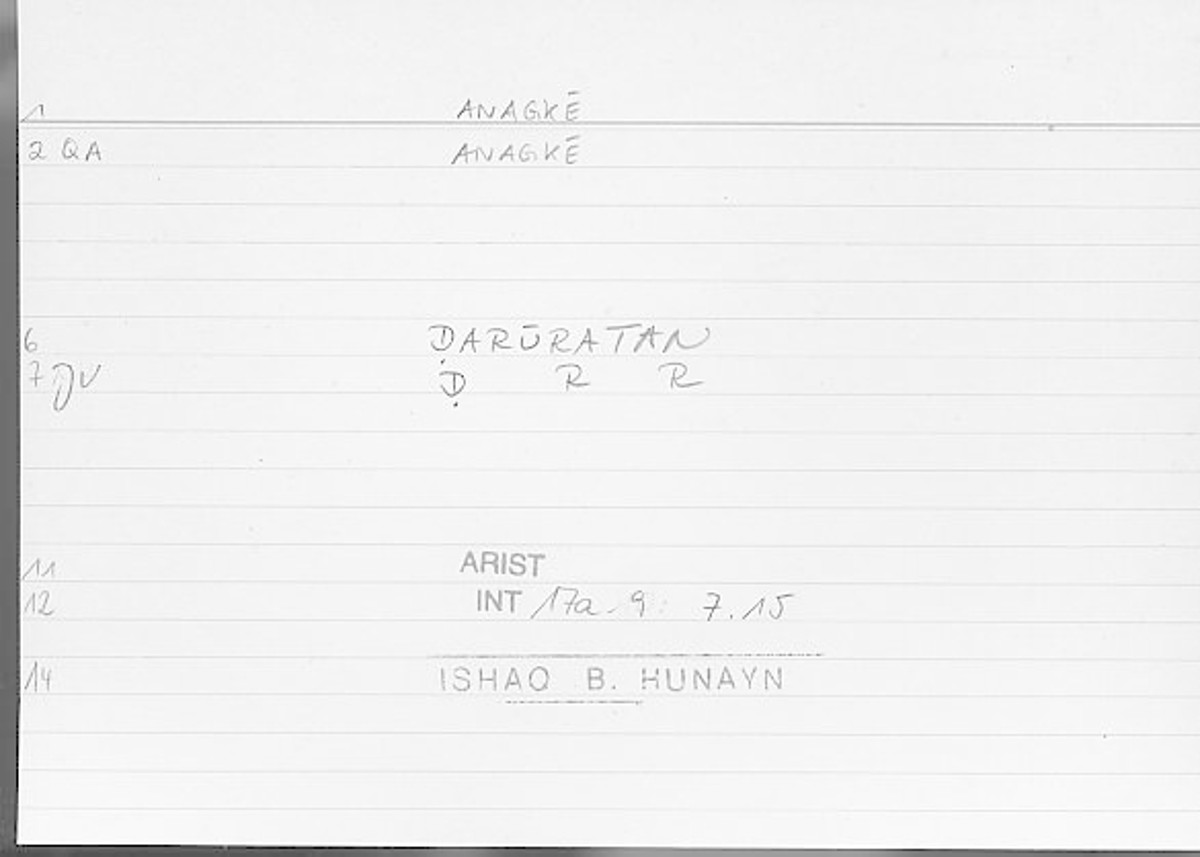 1 ANAGKĒ
2 QA ANAGKĒ
6 ḌARŪRATAN
7 Ḍ R R
11 ARIST
12 INT 17a 9 : 7.15
14 ISHAQ B. HUNAYN